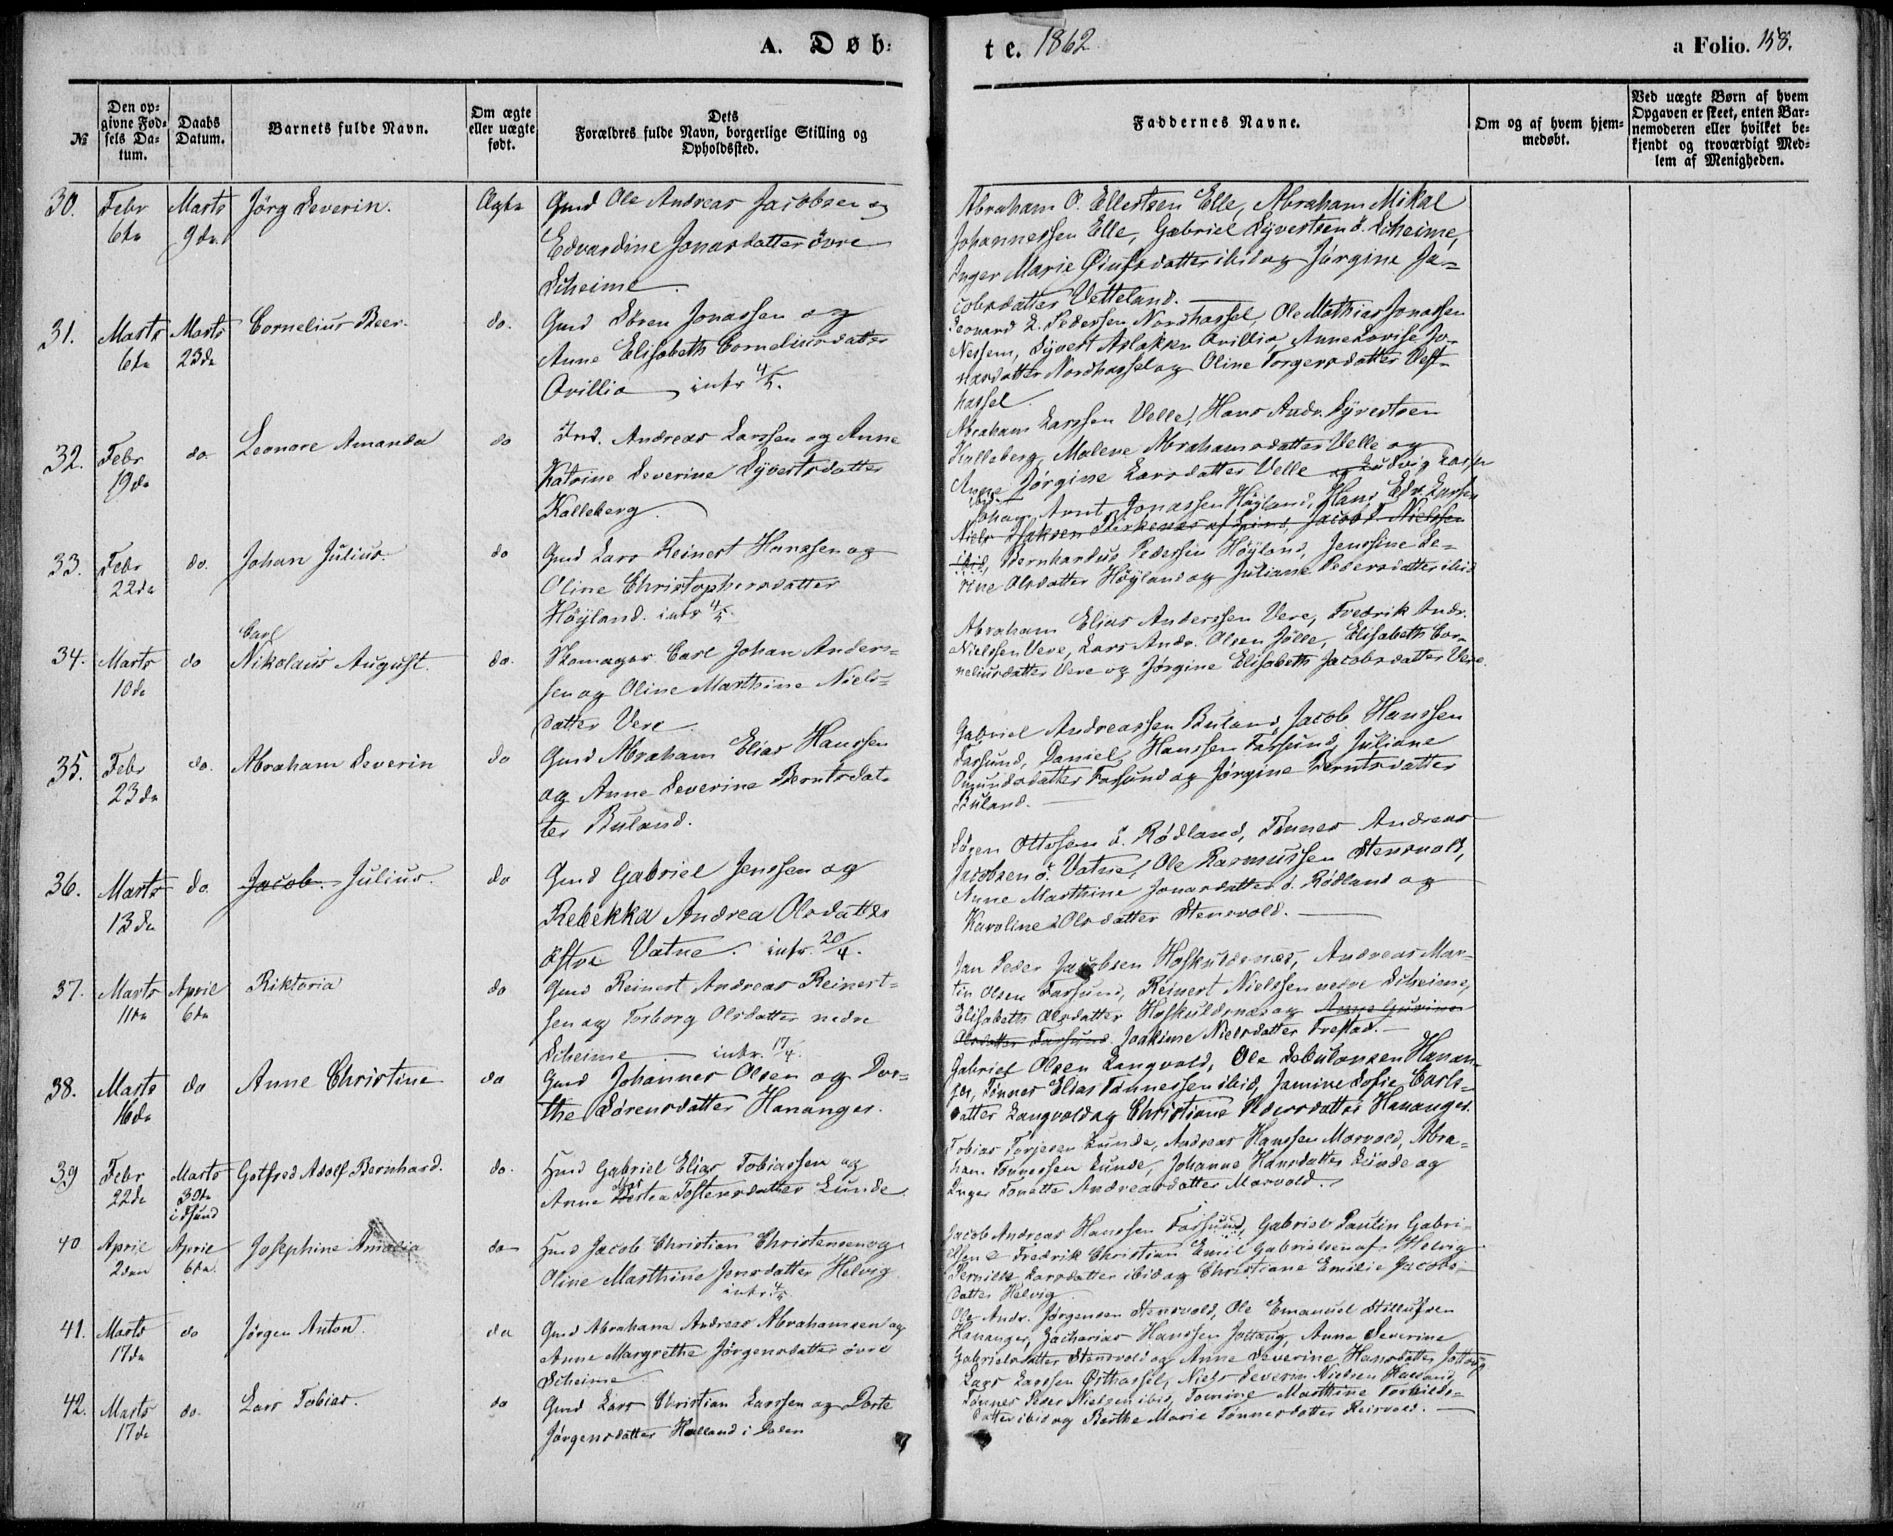 A. Døb=
te. 1862
a Folio. 158.
№
Den op=
givne Fød=
sels Da=
tum.
Daabs
Datum.
Barnets fulde Navn.
Om ægte
eller uægte
født.
Dets
Forældres fulde Navn, borgerlige Stilling og
Opholdssted.
Faddernes Navne.
Om og af hvem hjem=
medøbt.
Ved uægte Børn af hvem
Opgaven er skeet, enten Bar=
nemoderen eller hvilket be=
kjendt og troværdigt Med=
lem af Menigheden.
30. Febr Marts Jørg Severin. Ægte Gmd Ole Andreas Jacobsen og
6te 9de Edvardine Jonasdatter övre
Scheime
Abraham O. Ellertsen Elle, Abraham Mikal
Johannessen Elle, Gabriel Syvertsen ö. Scheime,
Inger Marie datter ibid og Jørgine Ja=
cobsdatter Vetteland.
31. Marts Marts Cornelius Beer. do. Gmd Sören Jonassen og
6te 23de Anne Elisabeth Corneliusdatter
Ovillia intr 4/5.
Leonard L. Pedersen Nordhassel, Ole Mathias Jonassen
Nessem, Syvert Aslaksen Ovillia, Anne Lovise Jo=
nasdatter Nordhassel og Oline Torgersdatter Vest=
hassel
32. Febr do. Leonore Amanda do Ind. Andreas Larssen og Anne
19de Katrine Severine Syvertsdatter
Kalleberg
Abraham Larssen Velle, Hans Andr. Syvertsen
Kalleberg, Malene Abrahamsdatter Velle og
Anne Jørgine Larsdatter Velle og Ludvig Larsen
33. Febr do. Johan Julius. do Gmd Lars Reinert Hanssen og
22de Oline Christophersdatter
Höyland. intr 4/5.
Johan Arnt Jonassen Höyland, Hans Edv. Larsen
Niels Isaksen Birkenes af Spind, Jacob T. Nielssen
ibid, Bernhardus Pedersen Höyland, Jenssine Se=
rine Olsdatter Höyland og Juliane Pedersdatter ibid
34. Marts do Carl
Nikolaus August do. Skomager Carl Johan Anders=
10de sen og Oline Marthine Niels=
datter Vere
Abraham Elias Anderssen Vere, Fredrik Andr.
Nielssen Vere, Lars Andr. Olsen Jølle, Elisabeth Cor=
neliusdatter Vere og Jørgine Elisabeth Jacobsdatter Vere.
35. Febr do. Abraham Severin do Gmd Abraham Elias Hanssen
23de og Anne Severine Berntsdat=
ter Buland.
Gabriel Andreassen Buland, Jacob Hanssen
Farsund, Daniel Hanssen Farsund, Juliane
Omundsdatter Farsund og Jørgine Berntsdatter
Buland.
36. Marts do Jacob Julius. do Gmd Gabriel Jenssen og
13de Rebekka Andrea Olsdatter
östre Vatne. intr. 20/4.
Sören Ottosen ö. Rödland, Tönnes Andreas
Jacobsen ö. Vatne, Ole Rasmussen Stensvold,
Anne Marthine Jonasdatter ö. Rödland og
Karoline Olsdatter Stensvold.
37. Marts April Riktoria do Gmd Reinert Andreas Reinert=
11te 6te sen og Torborg Olsdatter nedre
Scheime intr. 17/4.
Jan Peder Jacobsen Hoskuldsnæs, Andreas Mar=
tin Olsen Farsund, Reinert Nielssen nedre Scheime,
Elisabeth Olsdatter Hoskuldsnæs og Anne Gurine
Olsdatter Farsund Joakime Nielsdatter Frestad.
38. Marts do Anne Christine do Gmd Johannes Olsen og Dor=
16de the Sörensdatter Hananger.
Gabriel Olsen Langvold, Ole Hanan=
ger, Tönnes Elias Tønnessen ibid, Jamine Sofie Carls=
datter Langvold og Christiane Pedersdatter Hananger.
39 Febr Marts Gotfred Adolf Bernhard. do. Hmd Gabriel Elias Tobiassen og
22de 30te Anne Tostensdatter Lunde
i Ø sund
Tobias Torjesen Lunde, Andreas Hanssen Marvold, Abra=
ham Tønnessen Lunde, Johanne Hansdatter Lunde og
Inger Tonette Andreasdatter Marvold.
40 April April Josephine Amalia do Hmd Jacob Christian Christensen og
2den 6te. Oline Marthine Jensdatter Helvig
intr. 4/5
Jacob Andreas Hanssen Farsund, Gabriel Paulin Gabri=
elsen Fredrik Christian Emil Gabrielsen af Helvig
Pernille Larsdatter ibid og Christiane Emilie Jacobs=
datter Helvig
41. Marts do Jørgen Anton. do Gmd Abraham Andreas Abrahamsen og
17de Anne Margrethe Jørgensdatter övre
Scheime
Ole Andr. Jørgensen Stensvold, Ole Emanuel
Hananger, Zacharias Hanssen Jöttaug, Anne Severine
Gabrielsdatter Stensvold og Anne Severine Hansdatter Jöttaug
42. Marts do. Lars Tobias. do Gmd Lars Christian Larssen og Dorte
17de Jørgensdatter Haelland i Dalen
Lars Larssen Østhassel, Niels Severin Nielsen Haaland
Tönnes Peder Nielsen ibid, Tomine Marthine Torkilds=
datter ibid og Berthe Marie Tönnesdatter Reisvold.